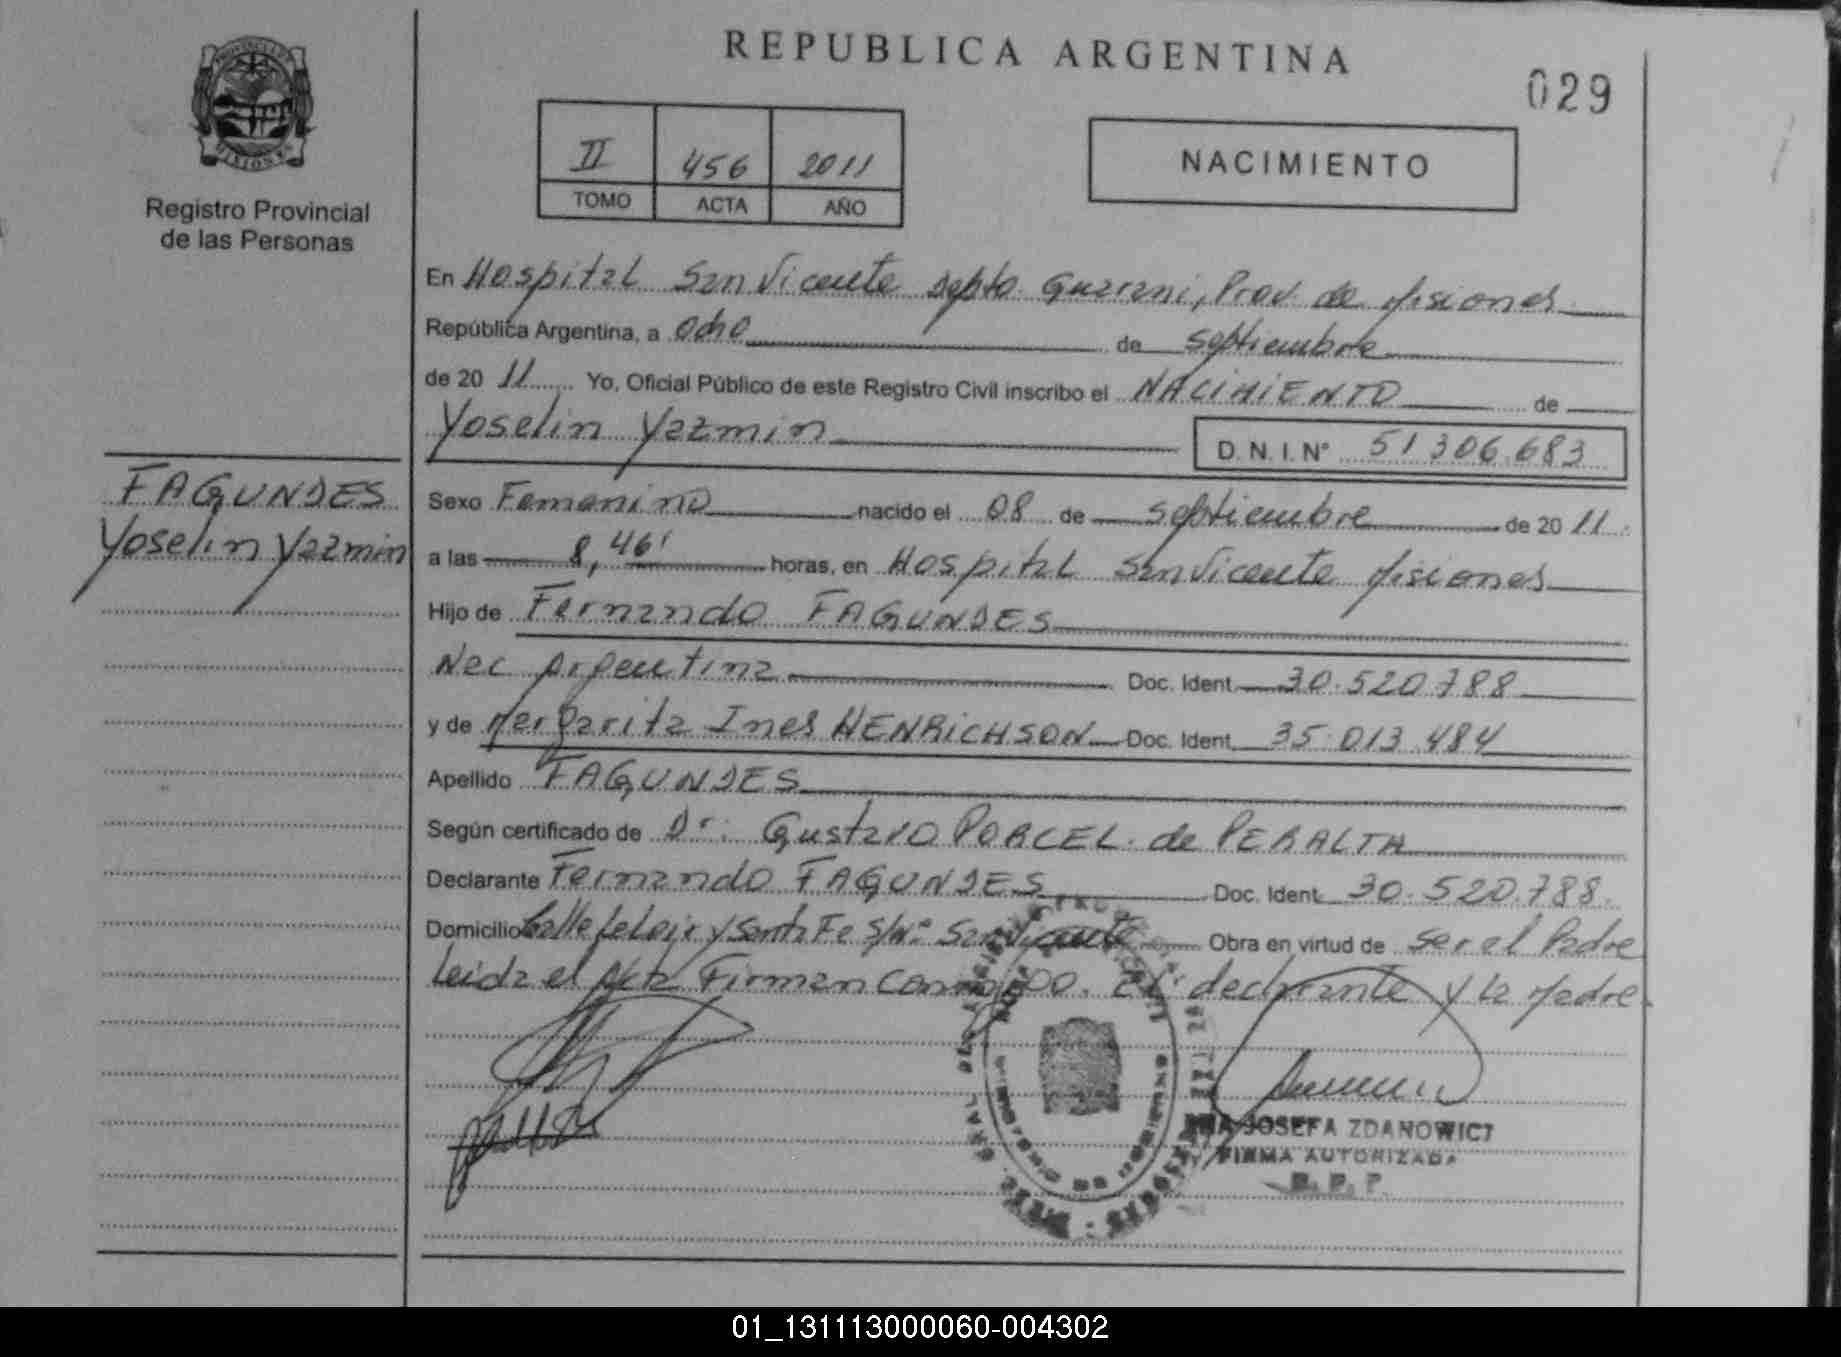 REPUBLICA ARGENTINA
029
Registro Provincial
de las Personas
II 456 2011
TOMO ACTA AÑO
NACIMIENTO
En Hospital San Vicente Depto Guarani, Prov. de Misiones
República Argentina, a ocho de septiembre
de 20 11 Yo, Oficial Público de este Registro Civil inscribo el NACIMIENTO de
Yoselin Yazmin D. N. I. N° 51306.683
FAGUNDES
Yoselin Yazmin
Sexo Femenino nacido el 08 de septiembre de 20 11
a las 8,46' horas, en Hospital San Vicente Misiones
Hijo de Fernando FAGUNDES
Nac Argentina Doc. Ident. 30.520.788
y de Margarita Ines HENRICHSON Doc. Ident. 35.013.484
Apellido FAGUNDES
Según certificado de Dr. Gustavo PORCEL de PERALTA
Declarante Fernando FAGUNDES Doc. Ident. 30.520.788.
Domicilio Calle y Santa Fe S/N° San Vicente Obra en virtud de ser el Padre
Leida el Acta Firman Conmigo. El declarante y la Madre.
JOSEFA ZDANOWICZ
FIRMA AUTORIZADA
R. P. P.
01_131113000060-004302